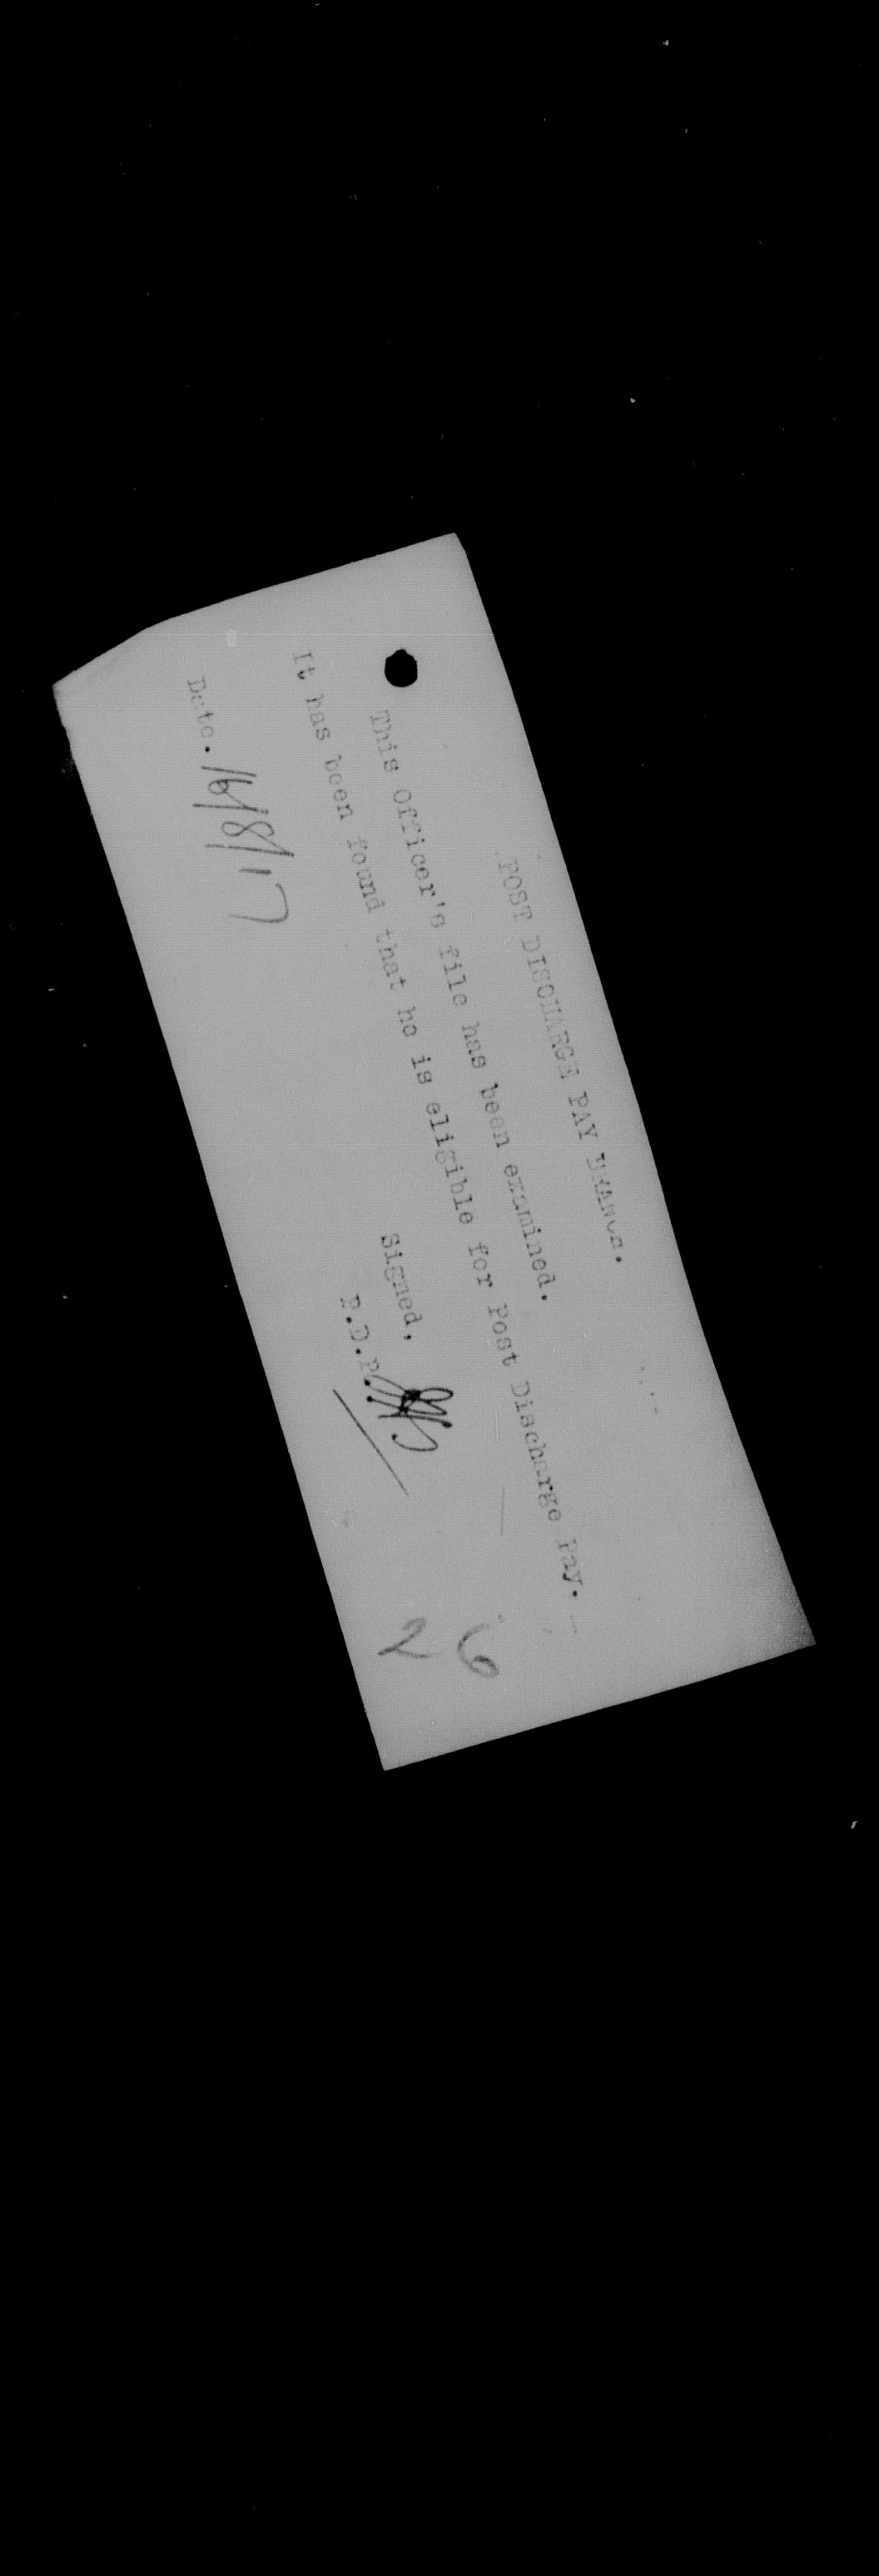 POST DISCHARGE PAY BRANCH.
This Officer's file has been examined.
It has been found that he is eligible for Post Discharge Pay.
Signed,
P.D.P.
Date. 16/8/17
26